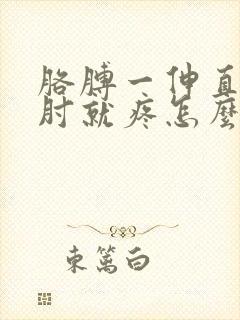 胳膊一伸直
肘就疼怎麼
東篱白